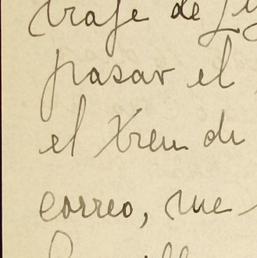 traje de
pasar el
el Xren de
correo, me